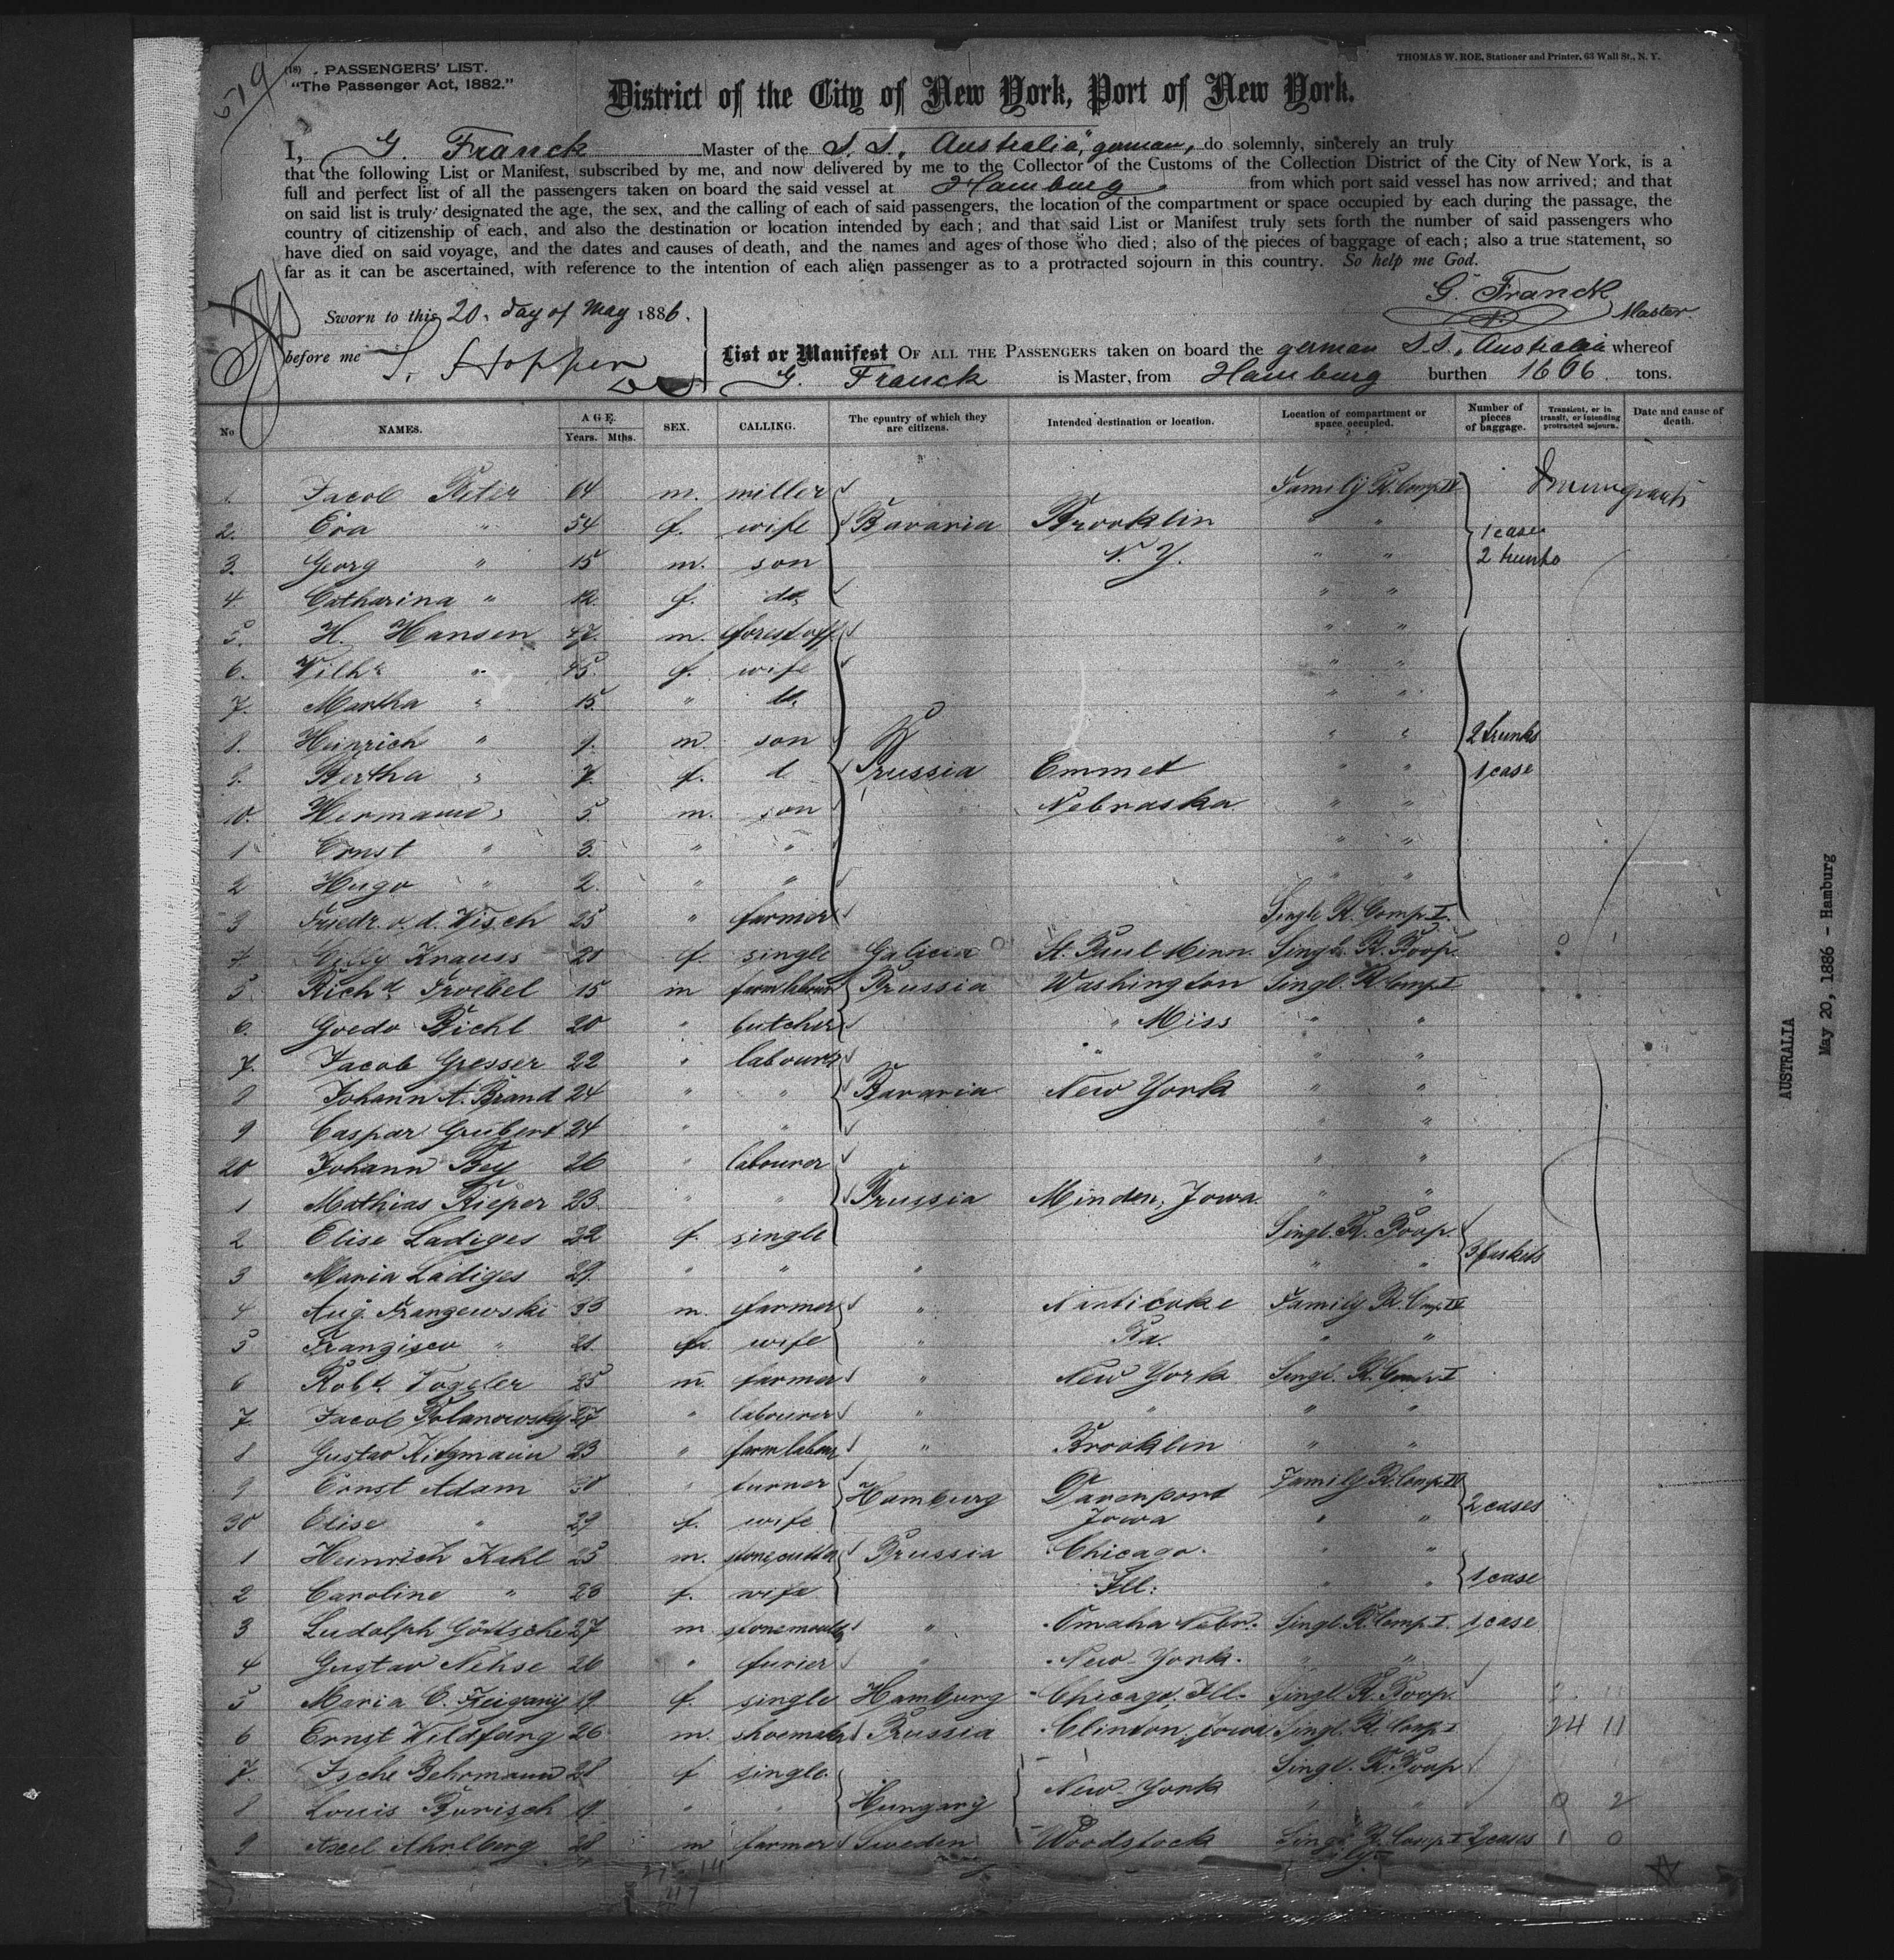 519
(18) PASSENGERS' LIST.
"The Passenger Act, 1882."
THOMAS W. ROE, Stationer and Printer, 63 Wall St., N. Y.
District of the City of New York, Port of New York.
I, G. Franck Master of the S. S. "Australia", german, do solemnly, sincerely an truly
that the following List or Manifest, subscribed by me, and now delivered by me to the Collector of the Customs of the Collection District of the City of New York, is a
full and perfect list of all the passengers taken on board the said vessel at Hamburg from which port said vessel has now arrived; and that
on said list is truly designated the age, the sex, and the calling of each of said passengers, the location of the compartment or space occupied by each during the passage, the
country of citizenship of each, and also the destination or location intended by each; and that said List or Manifest truly sets forth the number of said passengers who
have died on said voyage, and the dates and causes of death, and the names and ages of those who died; also of the pieces of baggage of each; also a true statement, so
far as it can be ascertained, with reference to the intention of each alien passenger as to a protracted sojourn in this country. So help me God.
G. Franck
Master.
Sworn to this 20. day of May 1886.
before me S. Hopper
List or Manifest OF ALL THE PASSENGERS taken on board the german S.S. "Australia whereof
G. Franck is Master, from Hamburg burthen 1606 tons.
No NAMES. AGE. Years. Mths. SEX. CALLING. The country of which they are citizens. Intended destination or location. Location of compartment or space occupied. Number of pieces of baggage. Transient, or in transit, or intending protracted sojourn. Date and cause of death.
1 Jacob Peter 64 m. miller Family R. Comp. IV
2. Eva " 54 f. wife Bavaria Brooklin " " 1 case
3. Georg " 15 m. son N. Y. " " 2 trunks
4. Catharina " 12. f. do. " "
5. H. Hansen 47. m. forestoff. " "
6. Wilhe " 45. f. wife " "
7. Martha " 15. " do. " "
8. Heinrich " 9. m. son " " 2 trunks
9. Bertha " 7. f. d Prussia Emmet " " 1 case
10. Hermann " 5. m. son Nebraska " "
1 Ernst " 3. " " " "
2 Hugo " 2. " " " "
3 Friedr. v. d. Wisch 25 " farmer Single R. Comp. I.
4 Knauss 20 f. single Galicia St. Paul Minn. Singl. R. Poop.
5. Richd Troebel 15 m farmlabour Prussia Washington Singl. R. Comp. I
6. Guedo Bichl 20 " butcher " Miss " "
7. Jacob Gresser 22 " labourer " " "
8 Johann A. Brand 24 " " Bavaria New York " "
9 Caspar Grubert 24 " " "
20 Johann Bey 26 " labourer " "
1 Mathias Rieper 23. " " Prussia Minden, Iowa. " "
2 Elise Ladiges 22 f. single Singl. R. Poop.
3 Maria Ladiges 29. " " " " " 3 baskets
4 Aug. Franzewski 33 m. farmer " Nanticoke Family R. Comp. IV
5 Franzisca " 21. f. wife " Pa. " "
6 Robt. Vogeler 25 m. farmer " New York Singl. R. Comp. I
7. Jacob Polanowsky 27 " labourer " " " "
8 Gustav Kitzmann 23 " farmlabour " Brooklin " "
9 Ernst Adam 30 " turner Hamburg Davenport Family R. Comp. IV 2 cases
30 Elise " 29 f. wife Iowa " "
1 Heinrich Kahl 25 m. stonecutter Prussia Chicago. " "
2 Caroline " 23 f. wife Ill: " " 1 case
3 Ludolph Göttsche 27 m " Omaha Nebr. Singl. R. Comp. I. 1 case
4 Gustav Nehse 26 " furier " New-York. " "
5 Maria C. 19 f. single Hamburg Chicago, Ill. Singl. R. Poop.
6 Ernst Wildfang 26 m. shoemaker Prussia Clinton, Iowa Singl. R. Comp. I 24 11
7. Behrmann 28 f single. Singl. R. Poop
8 Louis Borisch 19. " " Hungary New-York " " 0 2
9 Axel Ahrlberg 28 m farmer Sweden Woodstock Singl. R. Comp. I 2 cases 1 0
AUSTRALIA
May 20, 1886 - Hamburg